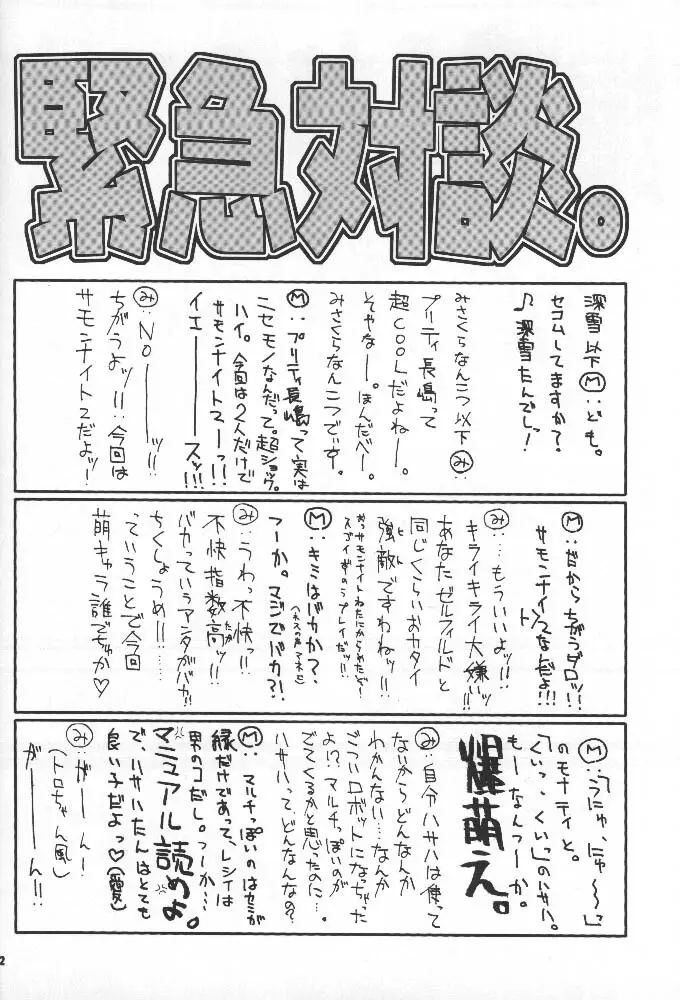 緊急対談。
深雪以下Ⓜ:ども。
セコムしてますか?
♪深雪たんでしっ!
みさくらなんこつ以下み:
プリティ長嶋って
超COOLだよねー。
そやなー。ほんだべー。
みさくらなんこつでぃす。
Ⓜ:プリティ長嶋って実は
ニセモノなんだって。超ショック。
ハイ。今回は2人だけで
サモンナイトマーっ!!
イエーーースッ!!!
み:NOーーーッ!!
ちがうよッ!!:今回は
サモンナイト2だよッ!
Ⓜ:だからちがうダロッ!!
サモンナイトⅤなんだよ!!!
み:…もういいよッ!!
キライキライ大嫌いッ!!
あなたゼルフィルドと
同じくらいおカタイ
強敵ですわねッ!!
おっサモンナイトねたにからられたぞ!
スゴイぞのうプレイだッ!!
Ⓜ:キミはバカか?、
(ネスの声マネに)
つーか。マジでバカ?!
み:うわっ不快っ!!
不快指数高ッ!!
バカっていうアンタがバカ!!
ちくしょうめ!!……
っていうことで今回
萌キャラ誰でぢか♡
Ⓜ:「うにゅ、にゅ〜〜」
のモナティと。
「くいっ、くいっ」のハサハ。
もーなんつーか。
爆萌え。
み:自分ハサハは使って
ないからどんなんか
わかんない…なんか
ごついロボットになっちゃった
よ!?マルチっぽいのが
でてくるかと思ったのに…。
ハサハって、どんなんなの?
Ⓜ:マルチっぽいのはセミが
縁だけであって、レシィは
男のコだし。つーか…
マニュアル読めよ。
で、ハサハたんはとても
良い子だよっ♡(愛)
み:がーん!
(トロちゃん風)
がーーーん!!
2